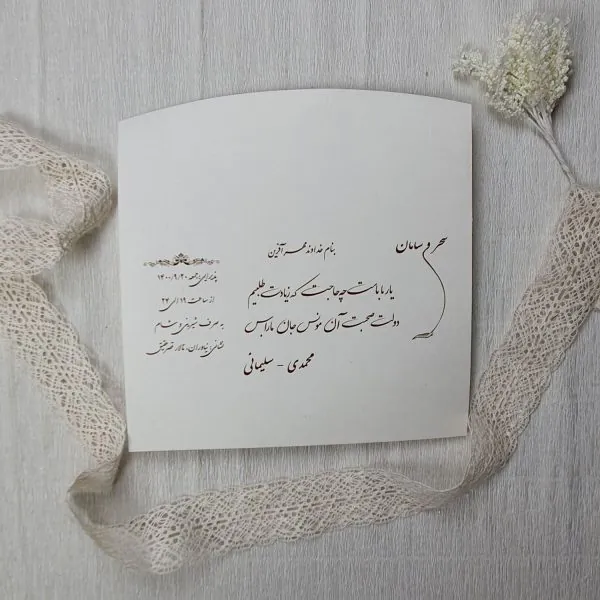 سحر و سامان
بنام خداوند مهر آفرین
یار با ماست چه حاجت که زیادت طلبیم
دولت صحبت آن مونس جان ما را بس
محمدی - سلیمانی
پذیرایی: جمعه ۱۴۰۰/۹/۲۰
از ساعت ۱۹ الی ۲۴
به صرف شیرینی و شام
نشانی: نیاوران، تالار قصر عقیق